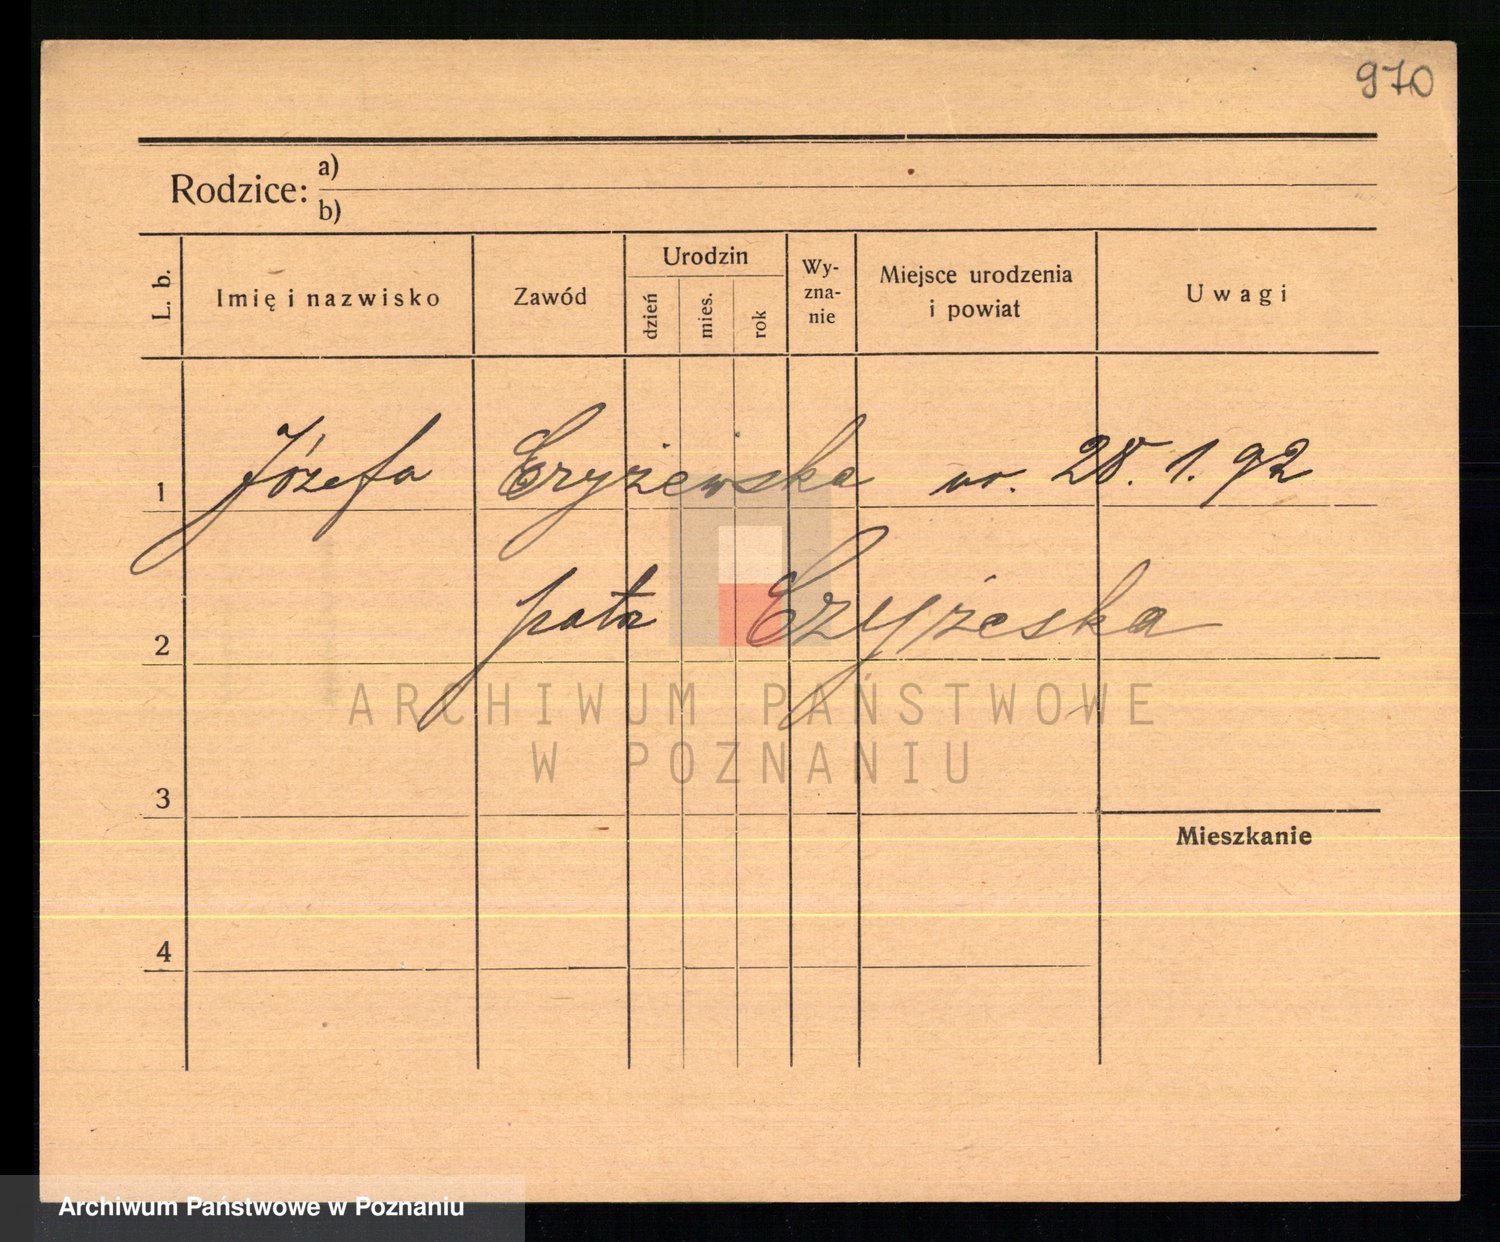 970
Rodzice: a)
b)
L. b.
Imię i nazwisko
Zawód
Urodzin
dzień
mies.
rok
Wy-
zna-
nie
Miejsce urodzenia
i powiat
Uwagi
1 Józefa Czyżewska ur. 28.1.92
2 patrz Czyżeska
ARCHIWUM PAŃSTWOWE
W POZNANIU
3
Mieszkanie
4
Archiwum Państwowe w Poznaniu